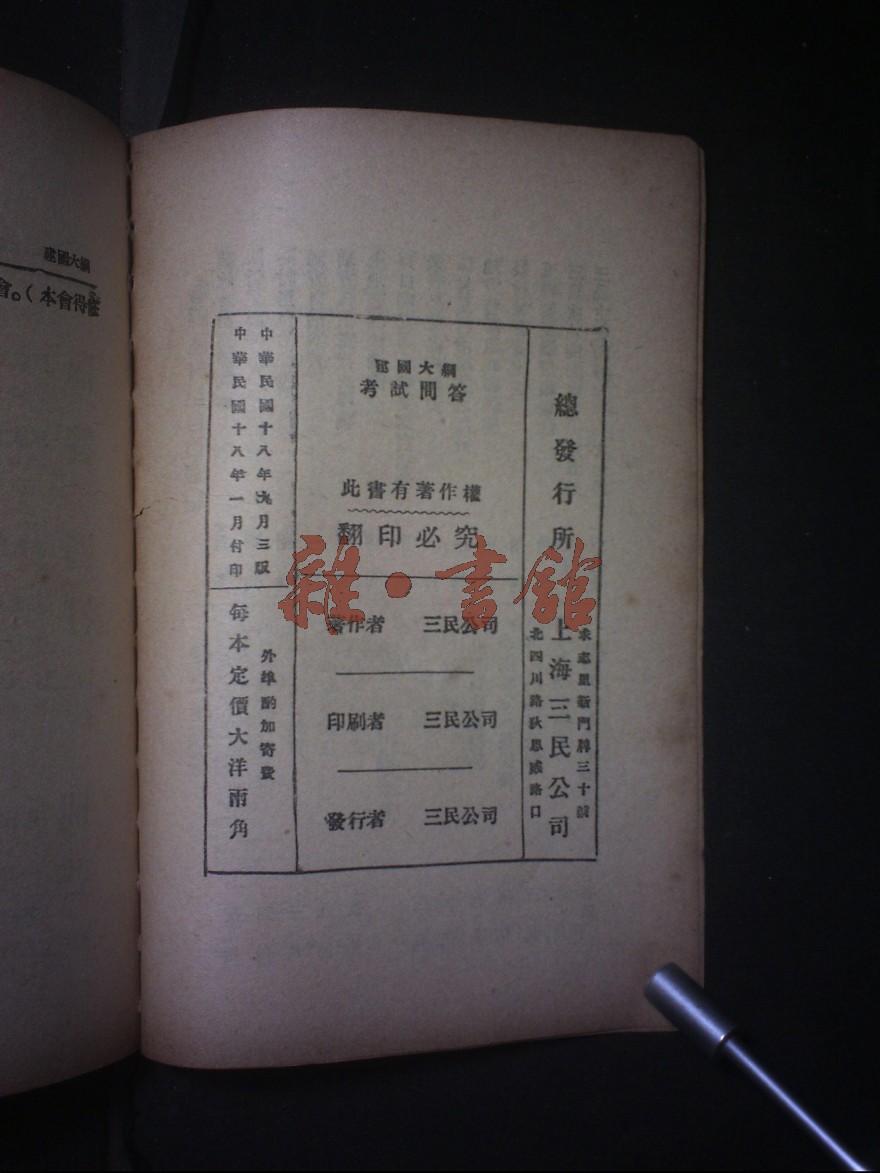 建國大綱
會。（本會得
總發行所　上海三民公司
北四川路狄思威路口
求志里新門牌三十號
建國大綱
考試問答
此書有著作權
翻印必究
著作者　三民公司
印刷者　三民公司
發行者　三民公司
中華民國十八年一月付印
中華民國十八年九月三版
每本定價大洋兩角
外埠酌加寄費
雜·書館